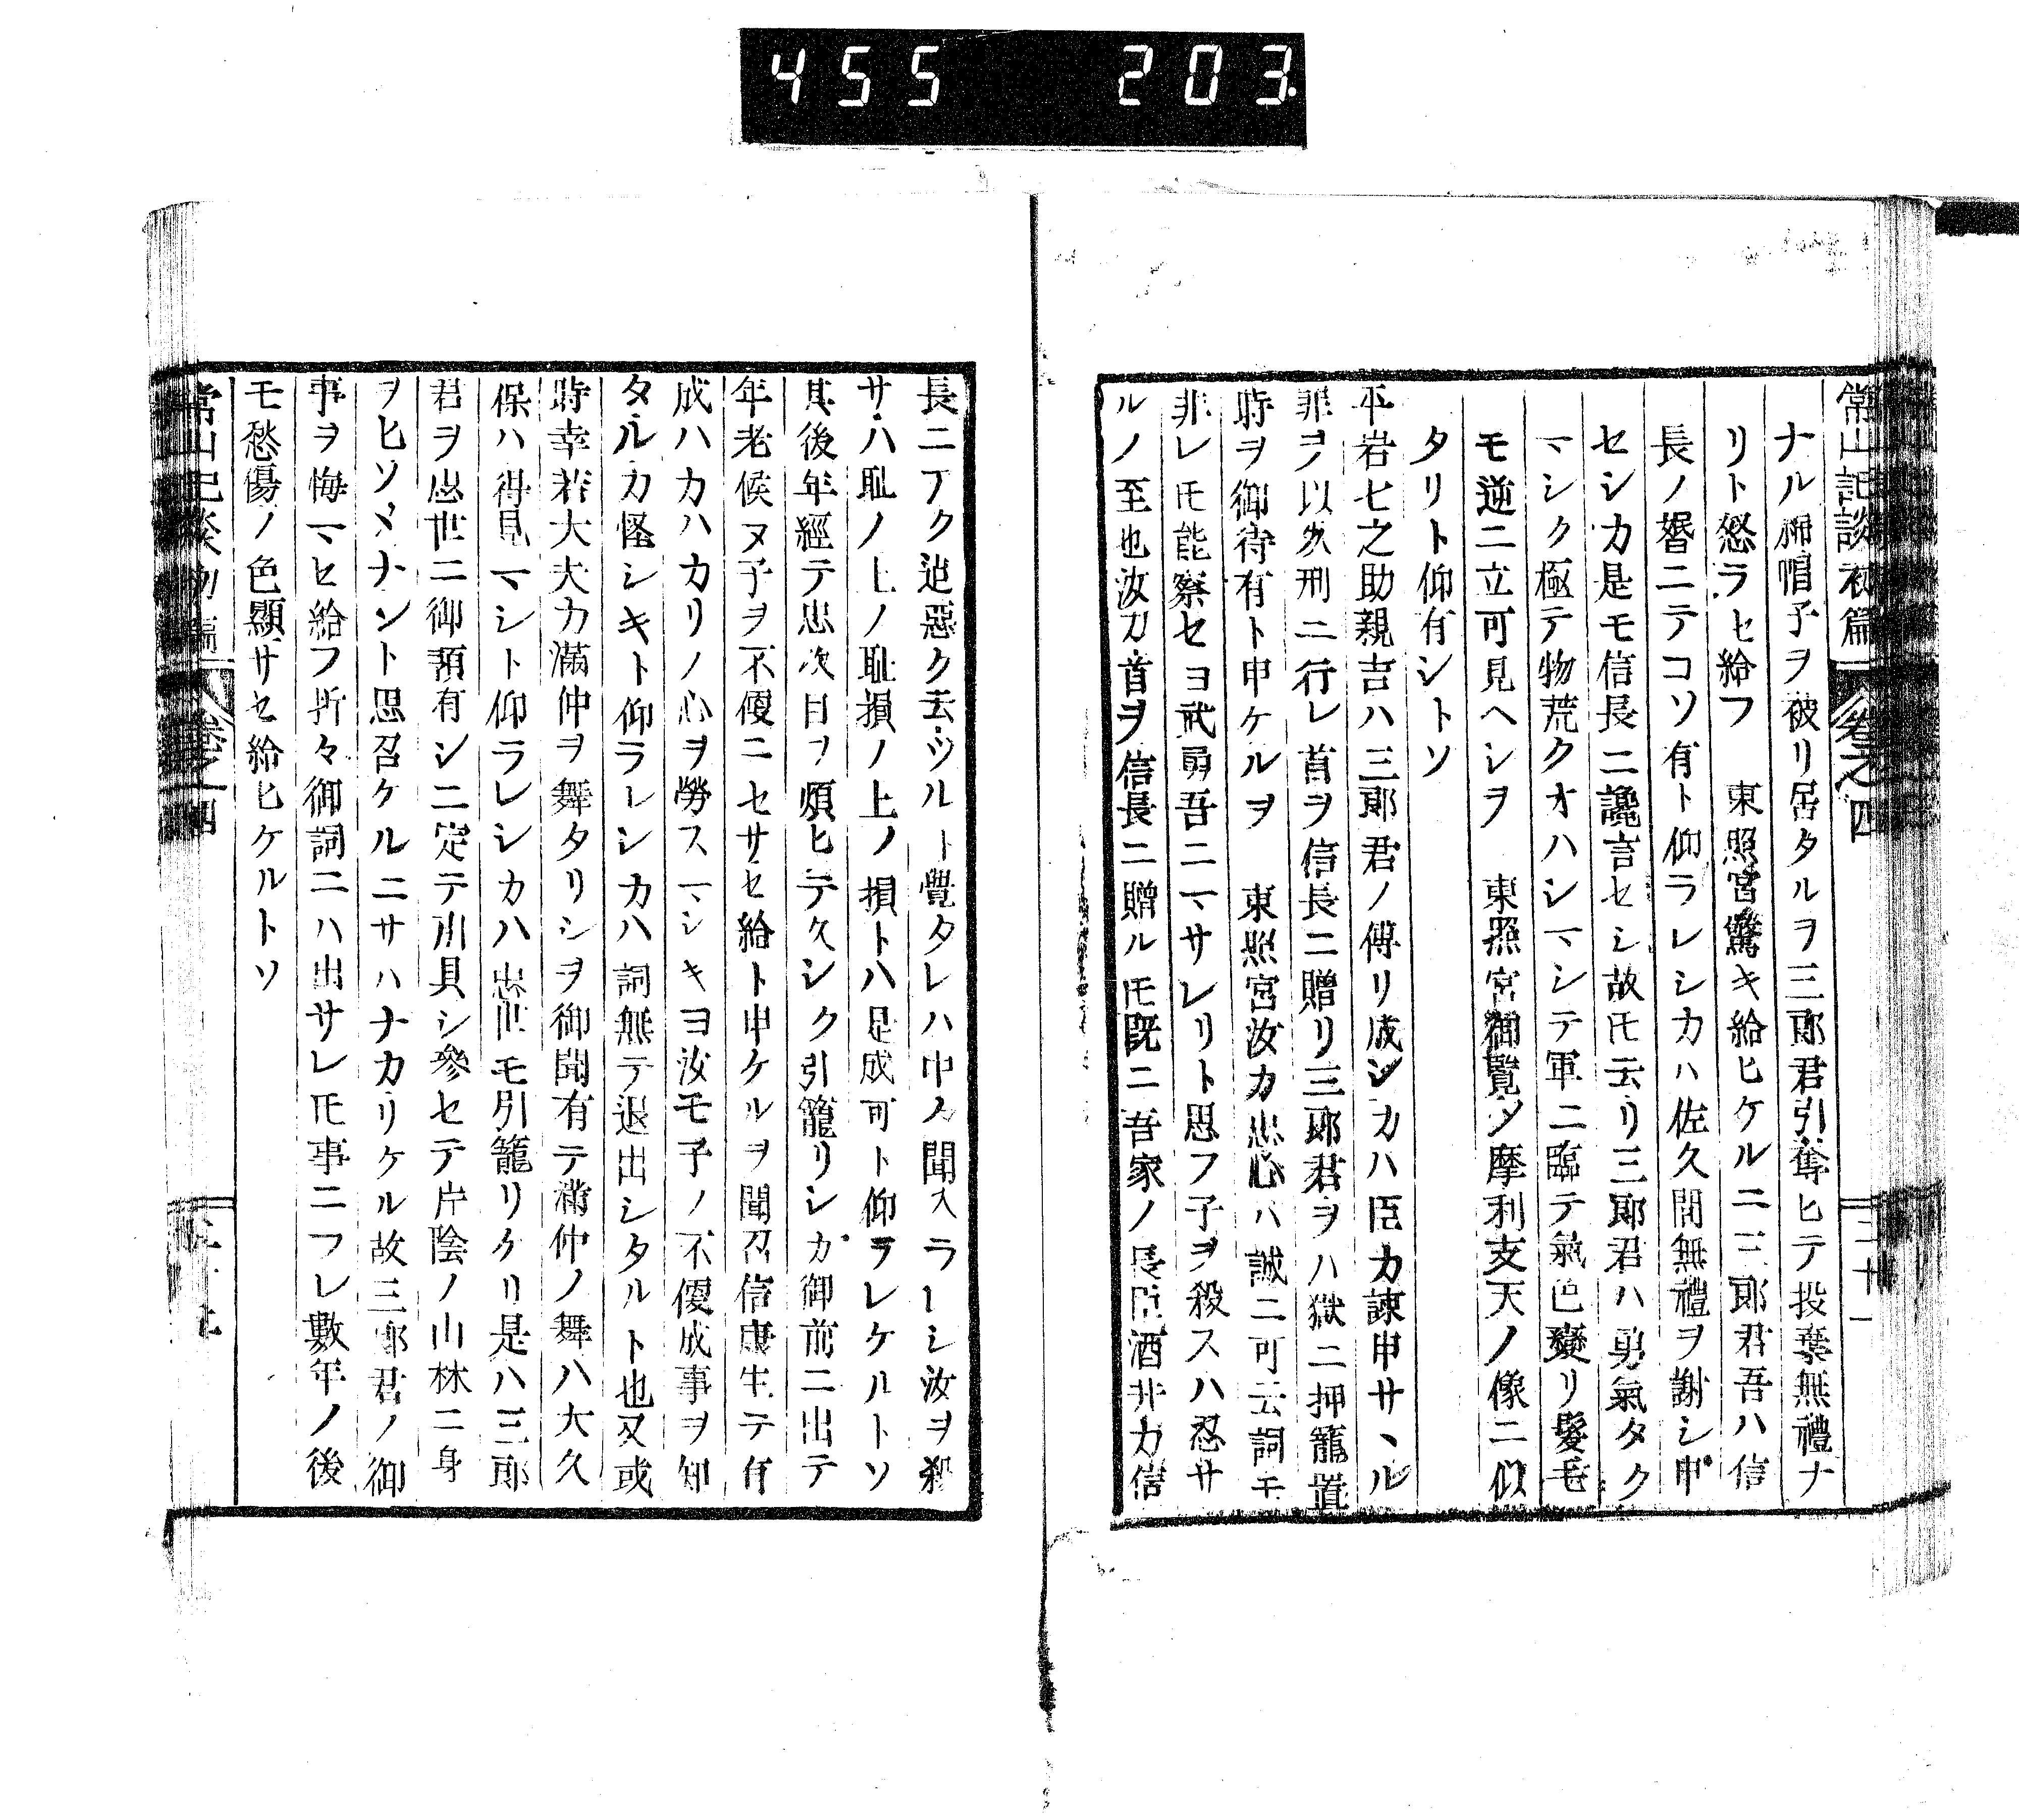 455 203
常山記談初篇 卷之四 三十一
ナル綿帽子ヲ被リ居タルヲ三郎君引奪ヒテ投棄無禮ナ
リト怒ラセ給フ 東照宮驚キ給ヒケルニ三郎君吾ハ信
長ノ婿ニテコソ有ト仰ラレシカハ佐久間無禮ヲ謝シ申
セシカ是モ信長ニ讒言セシ故𪜈云リ三郎君ハ勇氣タク
マシク極テ物荒クオハシマシテ軍ニ臨テ氣色變リ髮毛
モ逆ニ立可見ヘシヲ 東照宮御覽シ摩利支天ノ像ニ似
タリト仰有シトソ
平岩七之助親吉ハ三郎君ノ傅リ成シカハ臣カ諫申サヽル
罪ヲ以テ刑ニ行レ首ヲ信長ニ贈リ三郎君ヲハ獄ニ押籠置
時ヲ御待有ト申ケルヲ 東照宮汝カ忠心ハ誠ニ可云詞モ
非レ𪜈能察セヨ武勇吾ニマサレリト思フ子ヲ殺スハ忍サ
ルノ至也汝カ首ヲ信長ニ贈ル𪜈既ニ吾家ノ長臣酒井カ信
長ニアク迄惡ク云ツルト覺タレハ中々聞入ラレシ汝ヲ殺
サハ恥ノ上ノ恥損ノ上ノ損トハ是成可ト仰ラレケルトソ
其後年經テ忠次目ヲ煩ヒテ久シク引籠リシカ御前ニ出テ
年老候ヌ子ヲ不便ニセサセ給ト申ケルヲ聞召信康生テ有
成ハカハカリノ心ヲ勞スマシキヨ汝モ子ノ不便成事ヲ知
タルカ怪シキト仰ラレシカハ詞無テ退出シタルト也又或
時幸若大夫カ滿仲ヲ舞タリシヲ御聞有テ滿仲ノ舞ハ大久
保ハ得見マシト仰ラレシカハ忠世モ引籠リケリ是ハ三郎
君ヲ忠世ニ御預有シニ定テ引具シ參セテ片陰ノ山林ニ身
ヲヒソメナント思召ケルニサハナカリケル故三郎君ノ御
事ヲ悔マセ給フ折々御詞ニハ出サレ𪜈事ニフレ數年ノ後
モ愁傷ノ色顯サセ給ヒケルトソ
常山記談初編 卷之四